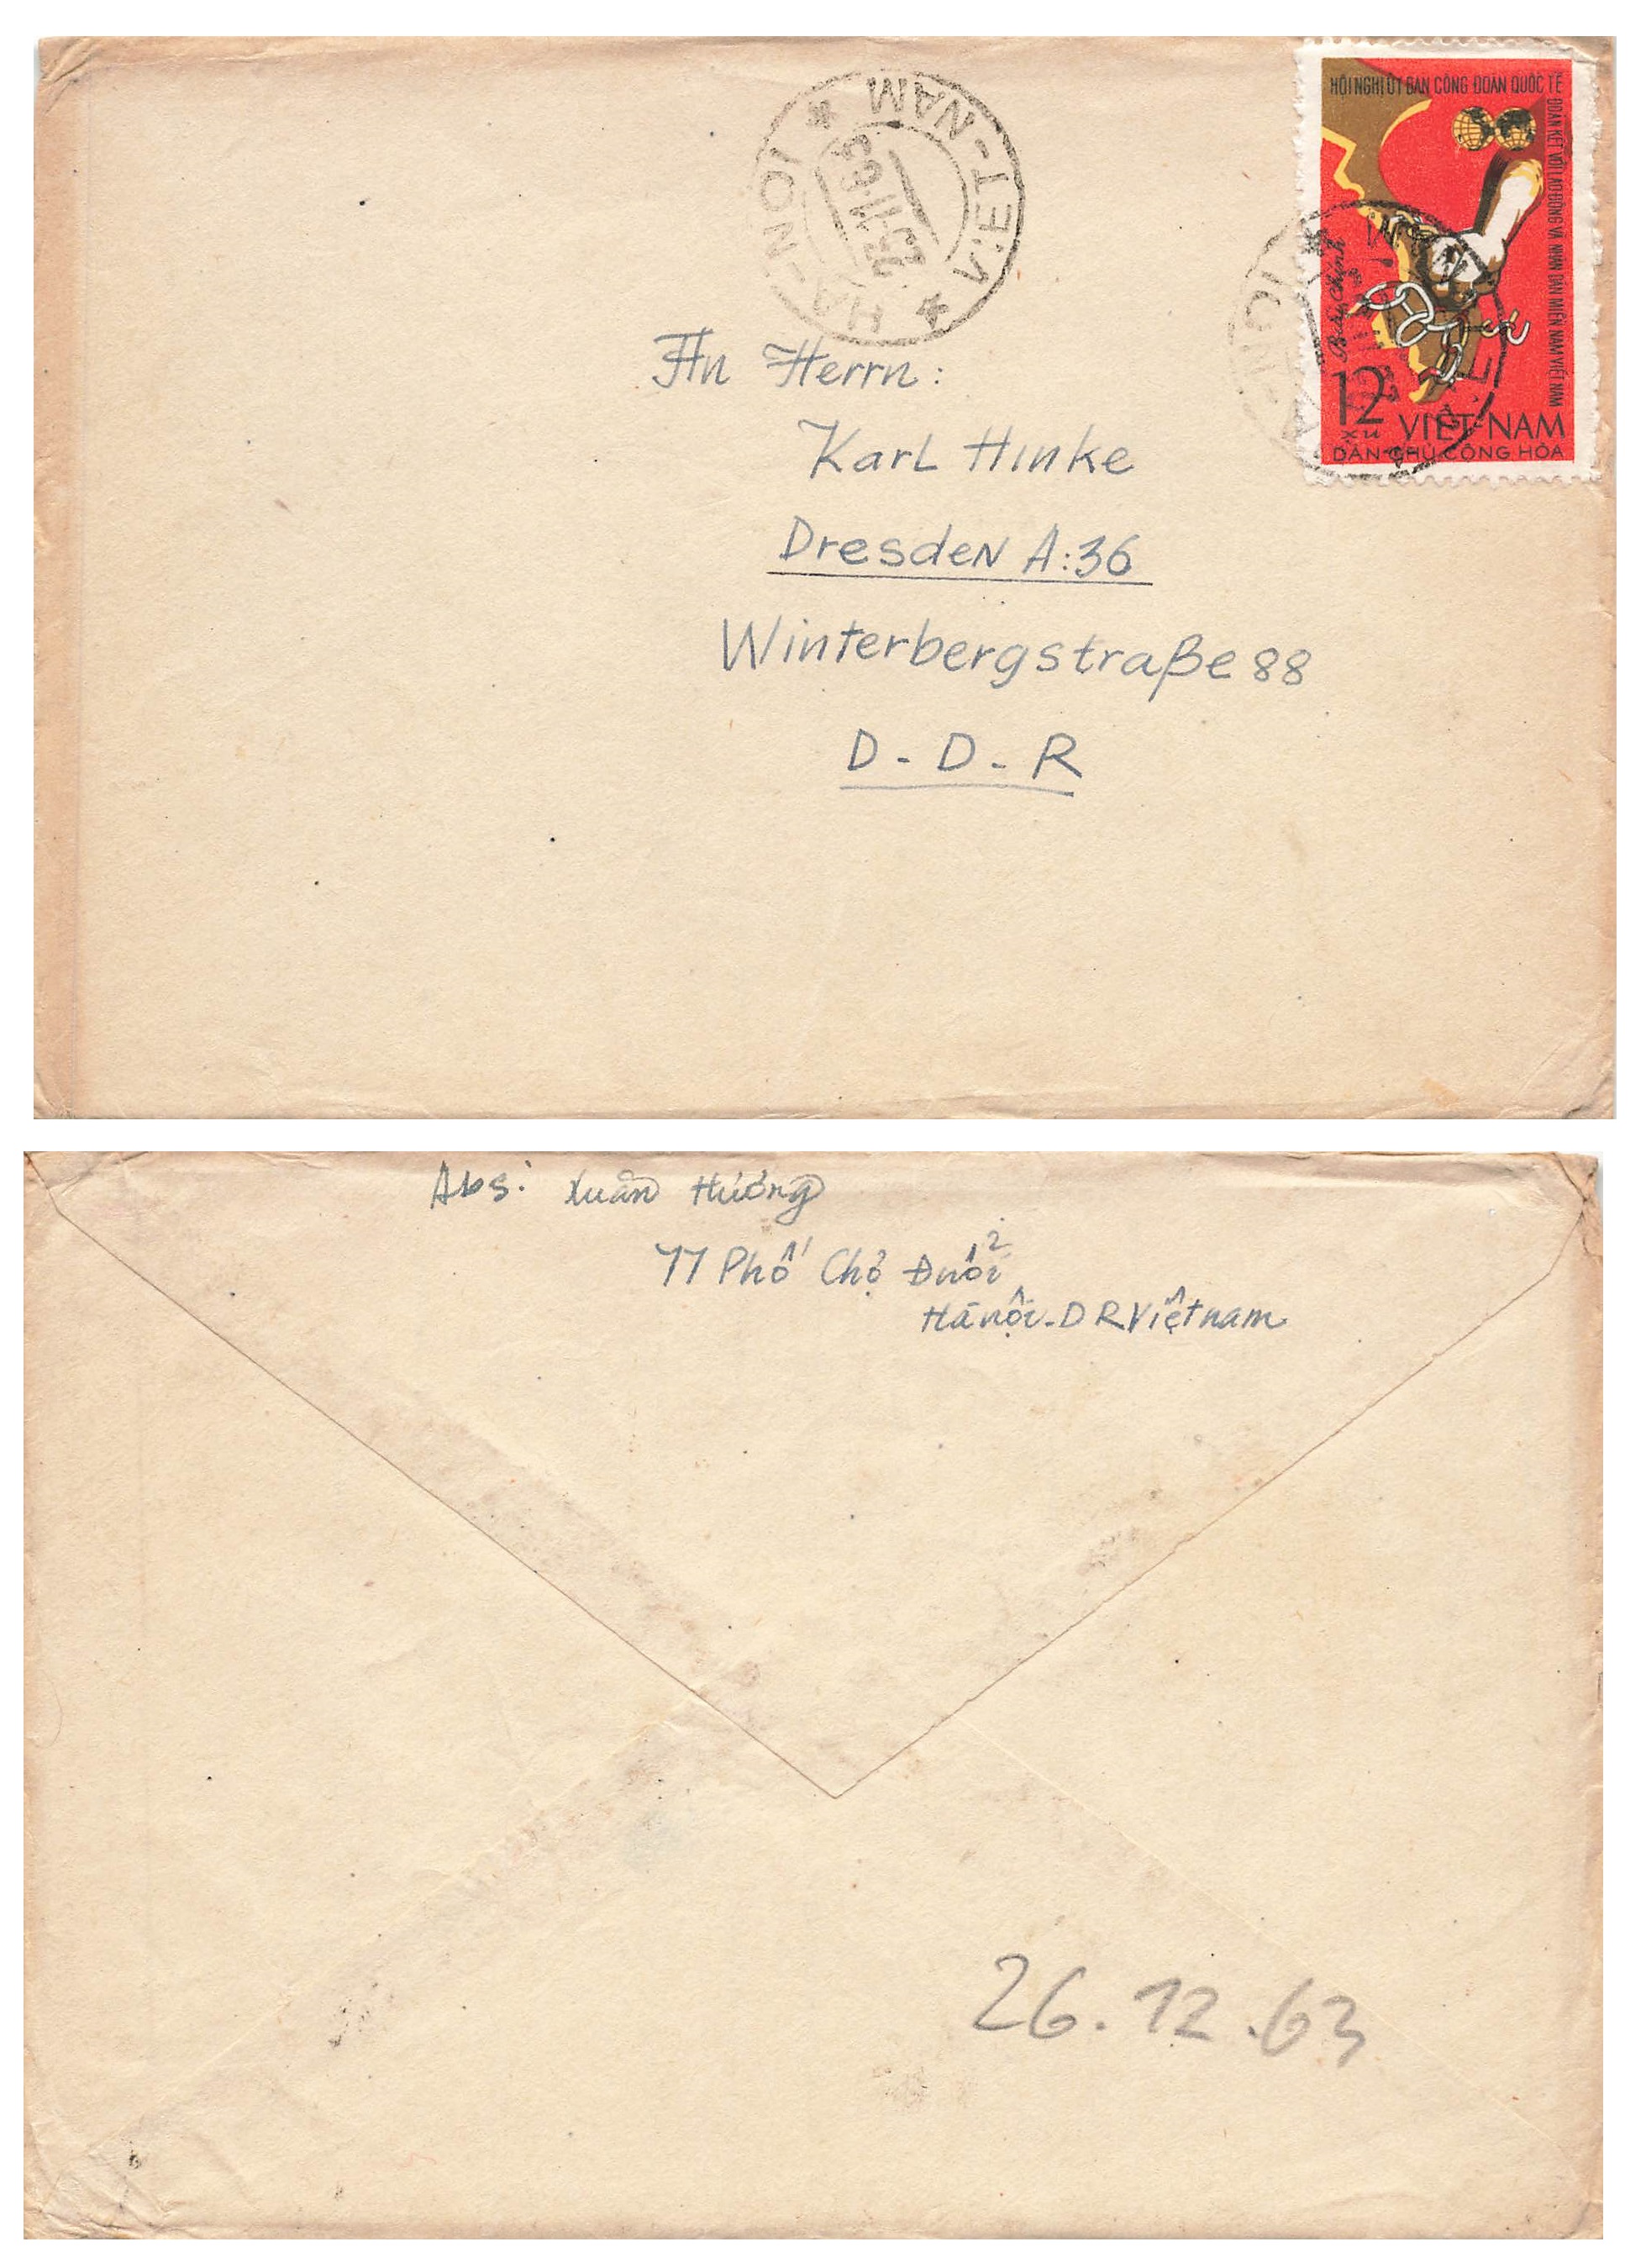 VIET-NAM
HA-NOI
23-11-63
HỘI NGHỊ ỦY BAN CÔNG ĐOÀN QUỐC TẾ
ĐOÀN KẾT VỚI LAO ĐỘNG VÀ NHÂN DÂN MIỀN NAM VIỆT NAM
12
xu
VIỆT-NAM
DÂN CHỦ CỘNG HÒA
An Herrn:
Karl Hinke
Dresden A:36
Winterbergstraße 88
D-D-R
Abs: Xuân Hương
77 Phố Chợ Đuổi
Hà nội-DR Việt nam
26.12.63